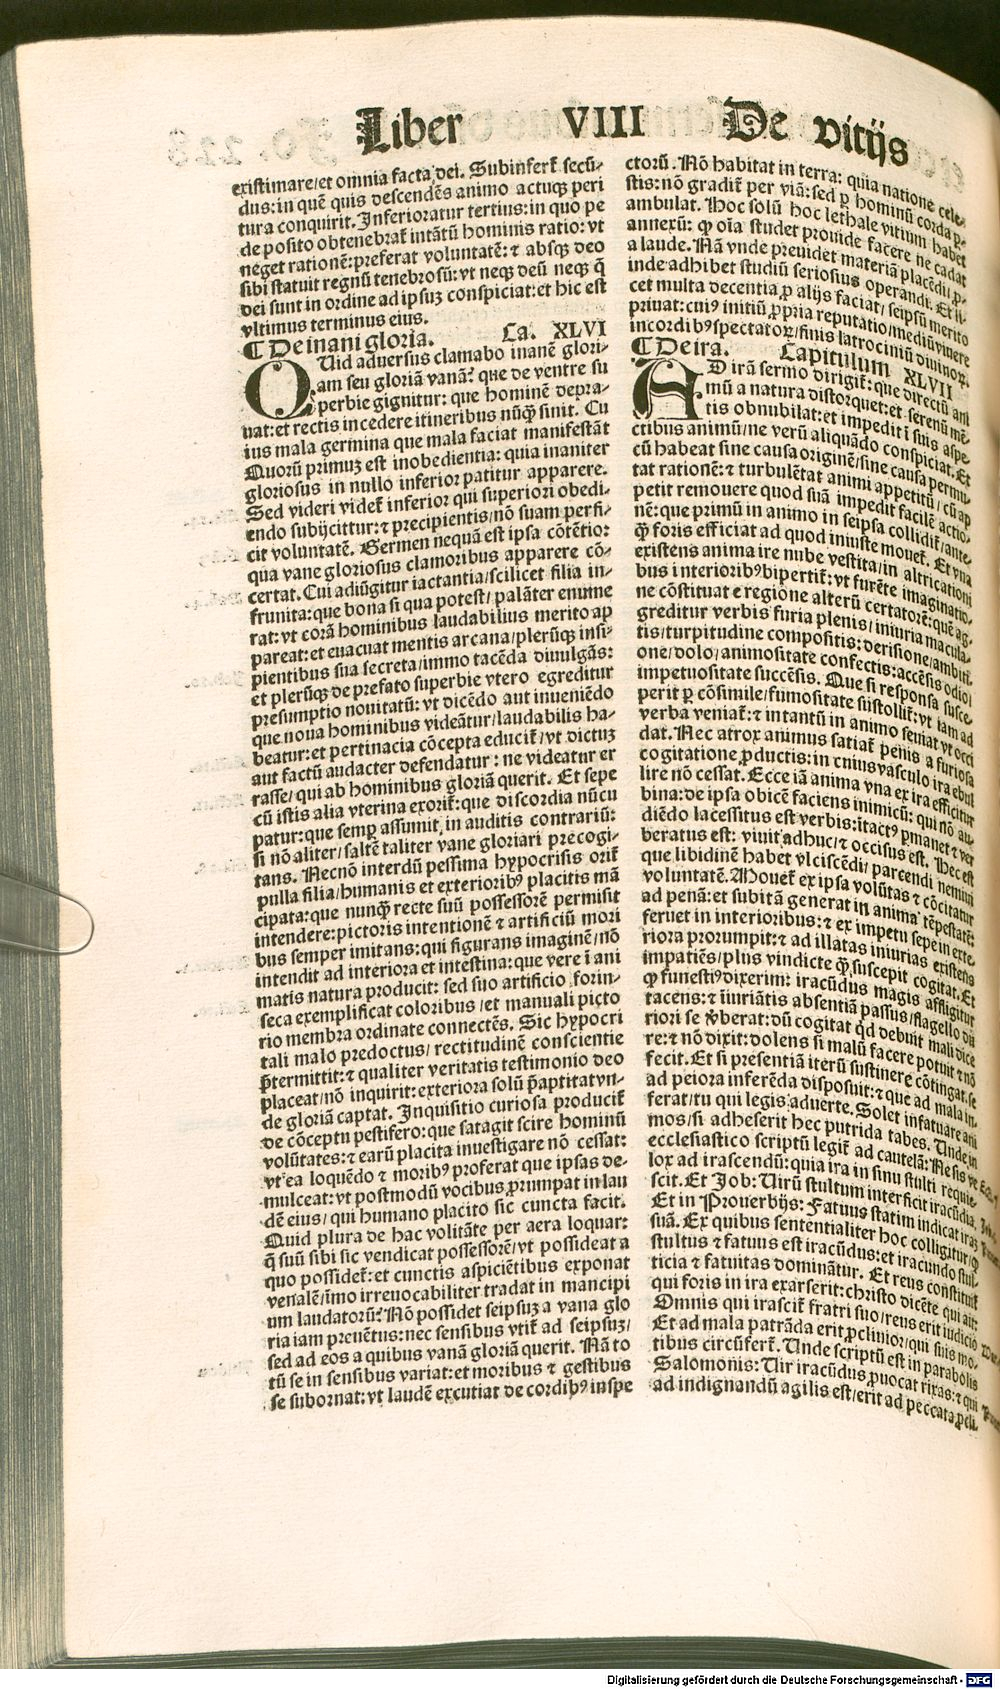 Liber VIII De vitijs
existimare/et omnia facta dei. Subinfert᷑ secū-
dus: in quē quis descendēs animo actuqꝫ peri
tura conquirit. Inferioratur tertius: in quo pe
de posito obtenebrat᷑ intātū hominis ratio: vt
neget rationē: preferat voluntatē: ⁊ absqꝫ deo
sibi statuit regnū tenebrosū: vt neqꝫ deū neqꝫ q̄
dei sunt in ordine ad ipsuꝫ conspiciat: et hic est
vltimus terminus eius.
¶ De inani gloria. Ca. XLVI
QUid aduersus clamabo inanē glori-
am seu gloriā vanā? que de ventre su
perbie gignitur: que hominē depra-
uat: et rectis incedere itineribus nūqꝫ sinit. Cu
ius mala germina que mala faciat manifestāt
Quorū primuꝫ est inobedientia: quia inaniter
gloriosus in nullo inferior patitur apparere.
Sed videri videt᷑ inferior qui superiori obedi-
endo subijcittur: ⁊ precipientis/nō suam perfi-
cit voluntatē. Germen nequā est ipsa cōtētio:
qua vane gloriosus clamoribus apparere cō-
certat. Cui adiūgitur iactantia/scilicet filia in-
frunita: que bona si qua potest/palāter enume
rat: vt corā hominibus laudabilius merito ap
pareat: et euacuat mentis arcana/plerūqꝫ insi-
pientibus sua secreta/immo tacēda diuulgās:
et plerūqꝫ de prefato superbie vtero egreditur
presumptio nouitatū: vt dicēdo aut inueniēdo
que noua hominibus videātur/laudabilis ha-
beatur: et pertinacia cōcepta educit᷑/vt dictuꝫ
aut factū audacter defendatur: ne videatur er
rasse/qui ab hominibus gloriā querit. Et sepe
cū istis alia vterina exorit᷑: que discordia nūcu
patur: que semꝑ assumit in auditis contrariū:
si nō aliter/saltē taliter vane gloriari precogi-
tans. Necnō interdū pessima hypocrisis orit᷑
pulla filia/humanis et exterioribꝰ placitis mā
cipata: que nunqꝫ recte suū possessorē permisit
intendere: pictoris intentionē ⁊ artificiū mori
bus semper imitans: qui figurans imaginē/nō
intendit ad interiora et intestina: que vere ī ani
matis natura producit: sed suo artificio forin-
seca exemplificat coloribus/et manuali picto
rio membra ordinate connectēs. Sic hypocri
tali malo predoctus/rectitudinē conscientie
p̄termittit: ⁊ qualiter veritatis testimonio deo
placeat/nō inquirit: exteriora solū p̄aptitat vn-
de gloriā captat. Inquisitio curiosa producit᷑
de cōceptu pestifero: que satagit scire hominū
volūtates: ⁊ earū placita inuestigare nō cessat:
vt ea loquēdo ⁊ moribꝰ proferat que ipsas de-
mulceat: vt postmodū vocibus ꝓrumpat in lau
dē eius/qui humano placito sic cuncta facit.
Quid plura de hac volitāte per aera loquar:
q̄ suū sibi sic vendicat possessorē/vt possideat a
quo possidet᷑: et cunctis aspiciētibus exponat
venalē/īmo irreuocabiliter tradat in mancipi
um laudatorū? Nō possidet seipsuꝫ a vana glo
ria iam preuētus: nec sensibus vtit᷑ ad seipsuꝫ/
sed ad eos a quibus vanā gloriā querit. Nā to
tū se in sensibus variat: et moribus ⁊ gestibus
se subornat: vt laudē excutiat de cordibꝰ inspe
ctorū. Nō habitat in terra: quia natione cele-
stis: nō gradit᷑ per viā: sed ꝑ hominū corda ꝑ-
ambulat. Hoc solū hoc lethale vitium habet
annexū: ꝙ oīa studet prouide facere ne cadat
a laude. Nā vnde preuidet materiā placēdi/ꝑ-
inde adhibet studiū seriosius operandi. Et li-
cet multa decentia ꝓ alijs faciat/seipsū merito
priuat: cuiꝰ initiū ꝓpria reputatio/mediū viuere
in cordibꝰ spectatoꝝ/finis latrociniū diuinoꝝ.
¶ De ira. Capitulum XLVII
AD irā sermo dirigit᷑: que directū ani
mū a natura distorquet: et serenū mē-
tis obnubilat: et impedit ī suis aspe-
ctibus animū/ne verū aliquādo conspiciat. Et
cū habeat sine causa originē/sine causa permu-
tat rationē: ⁊ turbulētat animi appetitū/cū ap
petit remouere quod suā impedit facilē actio-
nē: que primū in animo in seipsa collidit᷑/ante-
ꝙ foris efficiat ad quod iniuste mouet᷑. Et vna
existens anima ire nube vestita/in altricationi
bus interioribꝰ bipertit᷑: vt furēte imaginatio-
ne cōstituat e regione alterū certatorē: quē ag-
greditur verbis furia plenis/iniuria macula-
tis/turpitudine compositis: derisione/ambiti-
one/dolo/animositate confectis: accēsis odio/
impetuositate succēsis. Que si responsa susce-
perit ꝑ cōsimile/fumositate sustollit᷑: vt iam ad
verba veniat᷑: ⁊ intantū in animo seuiat vt occi
dat. Nec atrox animus satiat᷑ penis a furiosa
cogitatione ꝓductis: in cuius vasculo ira ebul
lire nō cessat. Ecce iā anima vna ex ira efficitur
bina: de ipsa obicē faciens inimicū: qui nō au-
diēdo lacessitus est verbis: ītactꝰ ꝑmanet ⁊ ver
beratus est: viuit adhuc/⁊ occisus est. Hec est
que libidinē habet vlciscēdi/parcendi nemini
voluntatē. Mouet᷑ ex ipsa volūtas ⁊ cōcitatur
ad penā: et subitā generat in anima tēpestatē:
feruet in interioribus: ⁊ ex impetu sepe in exte-
riora prorumpit: ⁊ ad illatas iniurias existens
impatiēs/plus vindicte ꝙ̄ suscepit cogitat. Et
ꝙ funestiꝰ dixerim: iracūdus magis affligitur
tacens: ⁊ īiuriātis absentiā passus/flagello du
riori se v̄berat: dū cogitat qd̄ debuit mali dice
re: ⁊ nō dixit: dolens si malū facere potuit ⁊ nō
fecit. Et si presentiā iterū sustinere cōtingat, se
ad peiora inferēda disposuit: ⁊ que ad mala in-
ferat/tu qui legis aduerte. Solet infatuare ani
mos/si adheserit hec putrida tabes. Unde in
ecclesiastico scriptū legit᷑ ad cautelā: Ne sis ve
lox ad irascendū: quia ira in sinu stulti requie-
scit. Et Job: Uirū stultum interficit iracūdia.
Et in Prouerbijs: Fatuus statim indicat iraꝫ
suā. Ex quibus sententialiter hoc colligitur/ꝙ
stultus ⁊ fatuus est iracūdus: et iracundo stul-
ticia ⁊ fatuitas dominātur. Et reus constituit᷑
qui foris in ira exarserit: christo dicēte qui ait:
Omnis qui irascit᷑ fratri suo/reus erit iudicio
Et ad mala patrāda erit ꝓcliuior/qui suis mo-
tibus circūfert᷑. Unde scriptū est in parabolis
Salomonis: Uir iracūdus ꝓuocat rixas: ⁊ qui
ad indignandū agilis est/erit ad peccata ꝓcli-